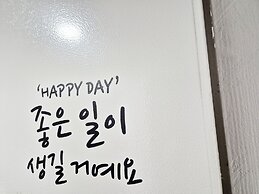 'HAPPY DAY'
좋은 일이
생길거예요